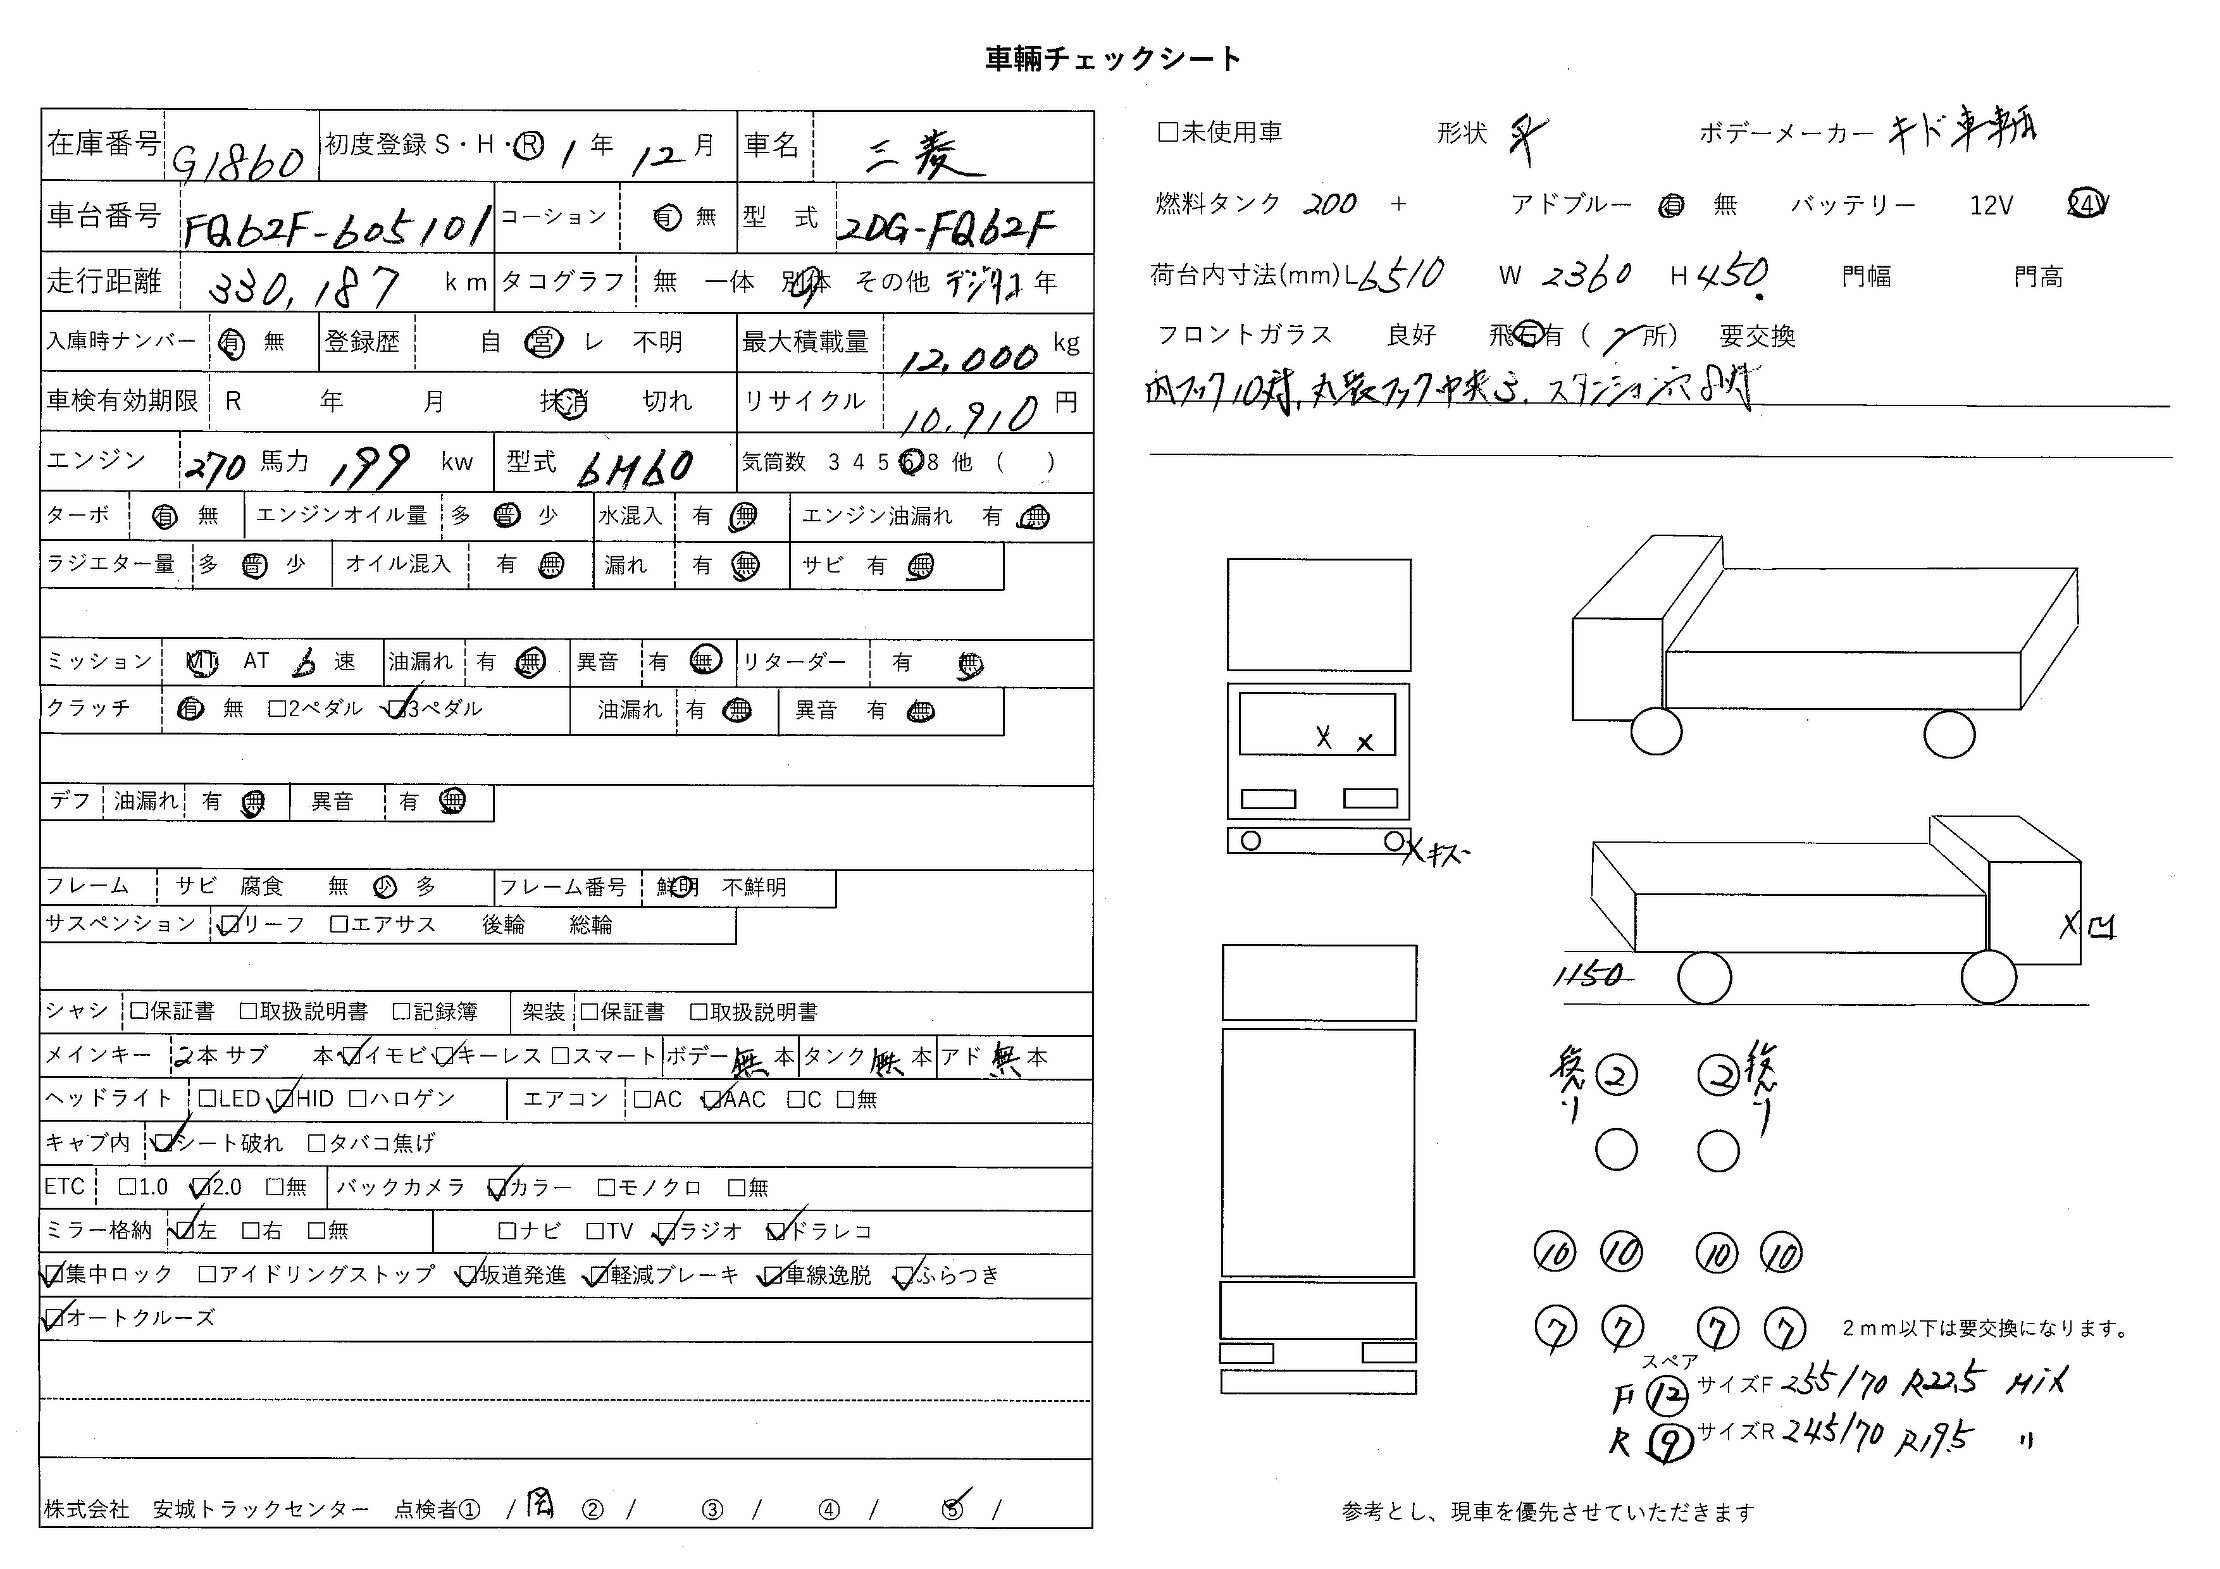 車輛チェックシート
在庫番号 G1860 初度登録 S・H・R 1 年 12 月 車名 三菱
車台番号 FQ62F-605101 コーション 有 無 型 式 2DG-FQ62F
走行距離 330,187 km タコグラフ 無 一体 別体 その他 デジタコ 年
入庫時ナンバー 有 無 登録歴 自 営 レ 不明 最大積載量 12,000 kg
車検有効期限 R 年 月 抹消 切れ リサイクル 10,910 円
エンジン 270 馬力 199 kw 型式 6M60 気筒数 3 4 5 6 8 他 ( )
ターボ 有 無 エンジンオイル量 多 普 少 水混入 有 無 エンジン油漏れ 有 無
ラジエター量 多 普 少 オイル混入 有 無 漏れ 有 無 サビ 有 無
ミッション MT AT 6 速 油漏れ 有 無 異音 有 無 リターダー 有 無
クラッチ 有 無 □2ペダル ☑3ペダル 油漏れ 有 無 異音 有 無
デフ 油漏れ 有 無 異音 有 無
フレーム サビ 腐食 無 少 多 フレーム番号 鮮明 不鮮明
サスペンション ☑リーフ □エアサス 後輪 総輪
シャシ □保証書 □取扱説明書 □記録簿 架装 □保証書 □取扱説明書
メインキー 2本 サブ 本 ☑イモビ ☑キーレス □スマート ボデー 無 本 タンク 無 本 アド 無 本
ヘッドライト □LED ☑HID □ハロゲン エアコン □AC ☑AAC □C □無
キャブ内 ☑シート破れ □タバコ焦げ
ETC □1.0 ☑2.0 □無 バックカメラ ☑カラー □モノクロ □無
ミラー格納 ☑左 □右 □無 □ナビ □TV ☑ラジオ ☑ドラレコ
☑集中ロック □アイドリングストップ ☑坂道発進 ☑軽減ブレーキ ☑車線逸脱 ☑ふらつき
☑オートクルーズ
株式会社 安城トラックセンター 点検者① / 岡 ② / ③ / ④ / ⑤ /
□未使用車 形状 平 ボデーメーカー キド車輌
燃料タンク 200 + アドブルー 有 無 バッテリー 12V 24V
荷台内寸法(mm) L6510 W 2360 H 450 門幅 門高
フロントガラス 良好 飛石有 ( 所) 要交換
内フック10対, 中央3. スタンション穴8対
X X
X キズ
X 凹
1150
② ②
⑩ ⑩ ⑩ ⑩
⑦ ⑦ ⑦ ⑦ 2mm以下は要交換になります。
スペア
F ⑫ サイズF 255/70 R22.5 MIX
R ⑨ サイズR 245/70 R19.5 〃
参考とし、現車を優先させていただきます